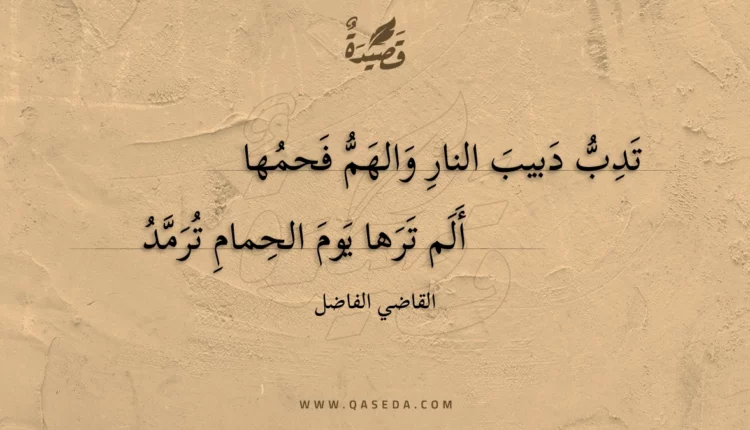 قَصِيْدَةٌ
تَدِبُّ دَبيبَ النارِ وَالهَمُّ فَحمُها
أَلَم تَرَها يَومَ الحِمامِ تُرَمَّدُ
القاضي الفاضل
WWW.QASEDA.COM